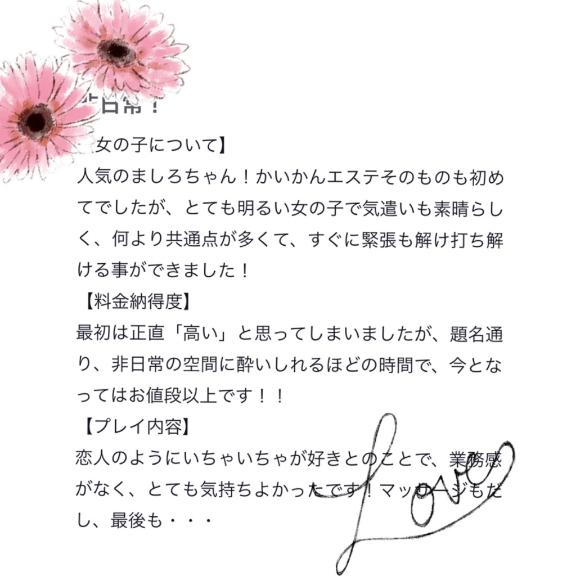 日常！
女の子について】
人気のましろちゃん！かいかんエステそのものも初め
てでしたが、とても明るい女の子で気遣いも素晴らし
く、何より共通点が多くて、すぐに緊張も解け打ち解
ける事ができました！
【料金納得度】
最初は正直「高い」と思ってしまいましたが、題名通
り、非日常の空間に酔いしれるほどの時間で、今とな
ってはお値段以上です！！
【プレイ内容】
恋人のようにいちゃいちゃが好きとのことで、業務感
がなく、とても気持ちよかったです！マッサージもだ
し、最後も・・・
Love